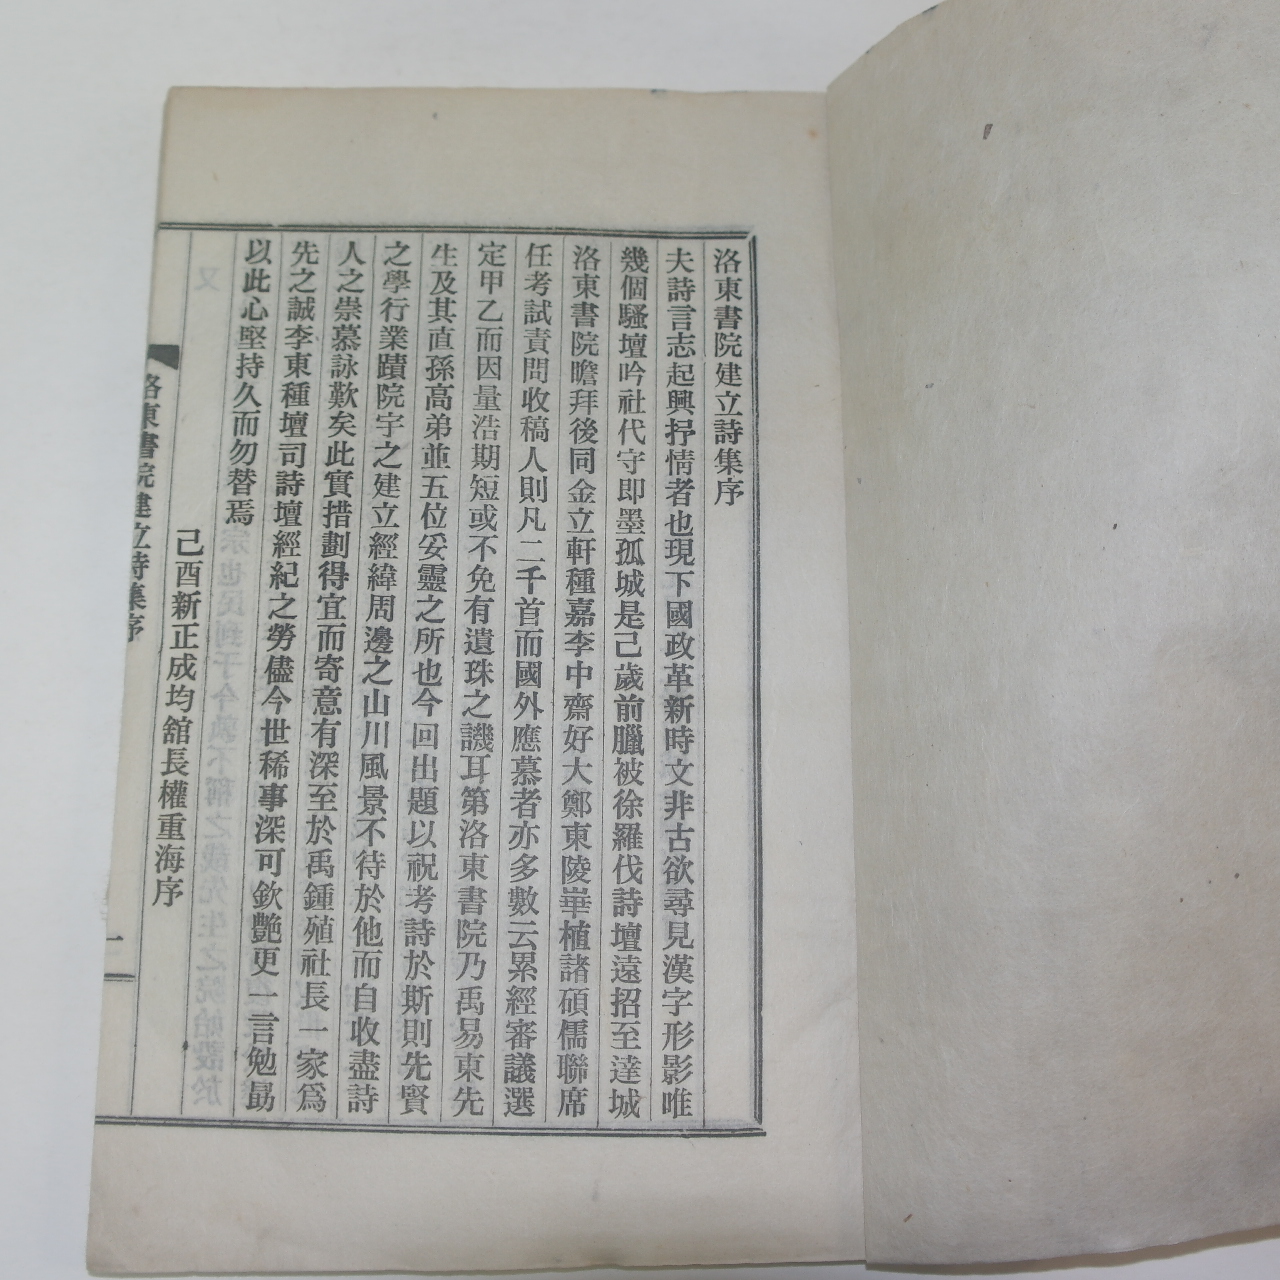 洛東書院建立詩集序
夫詩言志起興抒情者也現下國政革新時文非古欲尋見漢字形影唯
幾個騷壇吟社代守即墨孤城是己歲前臘被徐羅伐詩壇遠招至達城
洛東書院瞻拜後同金立軒種嘉李中齋好大鄭東陵崋植諸碩儒聯席
任考試責問收稿人則凡二千首而國外應慕者亦多數云累經審議選
定甲乙而因量浩期短或不免有遺珠之譏耳第洛東書院乃禹易東先
生及其直孫高弟並五位妥靈之所也今回出題以祝考詩於斯則先賢
之學行業蹟院宇之建立經緯周邊之山川風景不待於他而自收盡詩
人之崇慕詠歎矣此實措劃得宜而寄意有深至於禹鍾殖社長一家爲
先之誠李東種壇司詩壇經紀之勞儘今世稀事深可欽艷更一言勉勗
以此心堅持久而勿替焉
己酉新正成均舘長權重海序
洛東書院建立詩集序
一